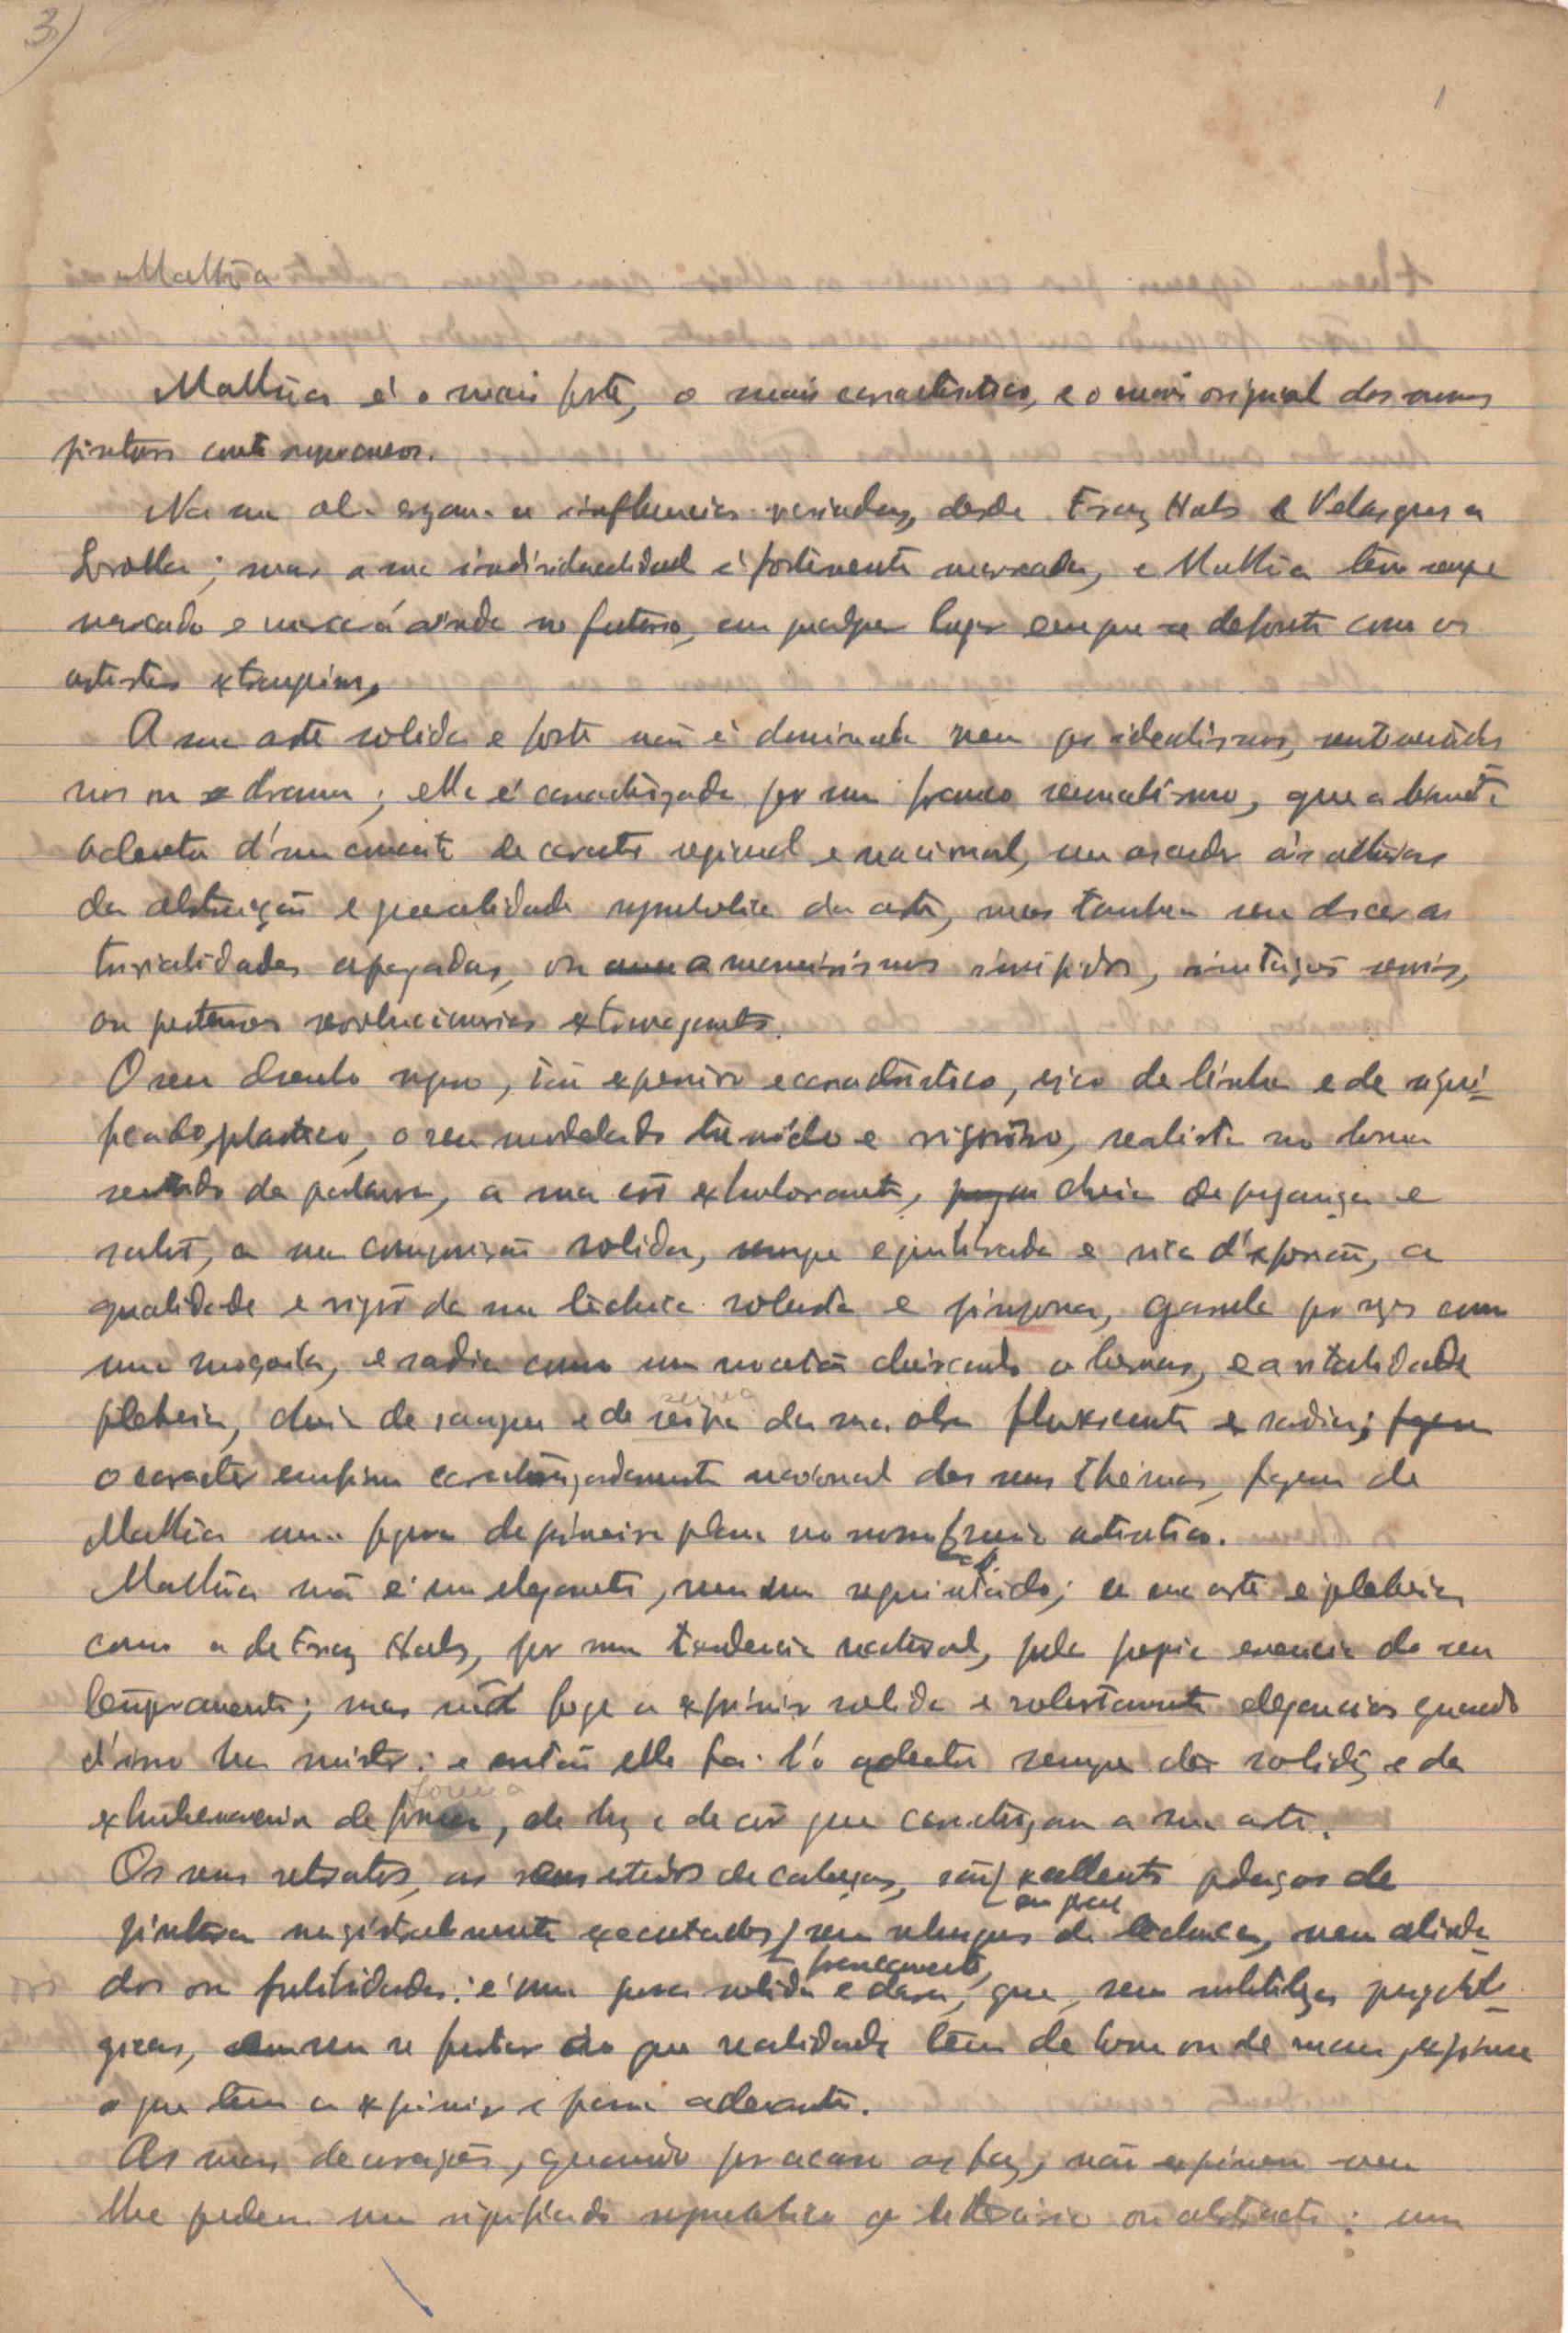 3)
1
Malhôa
Malhôa é o mais forte, o mais caracteristico, e o mais original dos nossos
pintores contemporaneos.
Na sua obra influencias variadas, desde Franz Hals e Velasques a
Sorolla; mas a sua individualidade é fortemente marcada, e Malhôa tem sempre
marcado e marcará ainda no futuro, em qualquer lugar em que se defronte com os
artistas extrangeiros.
A sua arte solida e forte não é dominada nem por idealismos, sentimentalis
mos ou drama; ella é caracterisada por um franco sensualismo, que
d'um de caracter regional e nacional, sem ascender ás alturas
da abstracção e generalidade symbolica da arte, mas tambem sem descer as
trivialidades apagadas, ou a maneirismos insipidos, imitações servis,
ou pretensos revolucionarios extravagantes.
O seu desenho seguro, tão expressivo e caracteristico, rico de linha e de signi-
ficado plastico, o seu modelado nitido e vigoroso, realista no bom
sentido da palavra, a sua côr exhuberante, cheia de pujança e
saude, a sua composição solida, sempre equilibrada e rica d'expressão, a
qualidade e vigor da sua technica robusta e, garrula por vezes como
uma rapariga, e sadia como um, e a vitalidade
plebeia, cheia de sangue e de seiva seiva da sua obra e sadia;
o caracter emfim nacional dos seus themas, fazem de
Malhôa uma figura de primeiro plano no nosso meio artistico.
Malhôa não é um elegante, nem um requintado; a sua arte é plebeia
como a de Franz Hals, por sua tendencia natural, pela propria essencia do seu
temperamento; mas não foge a exprimir solida e robustamente elegancias quando
d'isso ha mister: e então ella sempre da solidez e da
exhuberancia de forma forma, de luz e de côr que caracterisam a sua arte.
Os seus retratos, os seus estudos de cabeças, são excellentes pedaços de
pintura magistralmente executados, sem rebusques de technica, nem
dos ou futilidades: é uma prosa solida e clara, francamente, que, sem subtilezas psycholo-
gicas, sem se furtar ao que a realidade tem de bom ou de mau, exprime
o que tem a exprimir e passa adeante.
As suas decorações, quando por acaso as faz, não exprimem nem
lhe pedem um significado symbolico litterario ou abstracto: um